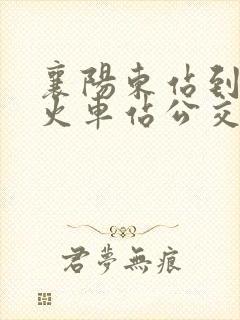 襄陽東佔到
火車佔公交
君夢無痕